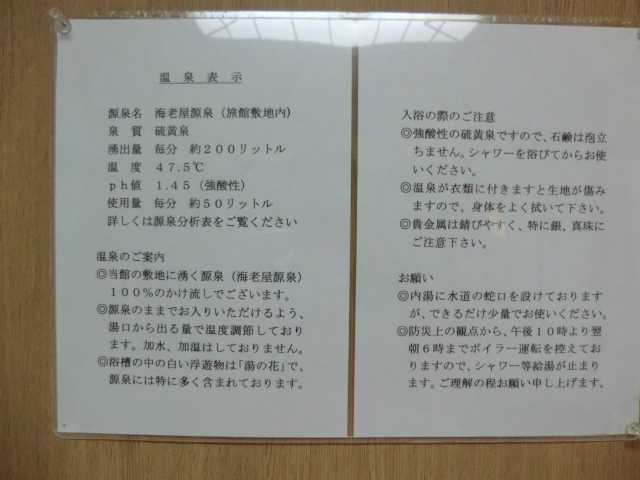 温 泉 表 示
源泉名　海老屋源泉（旅館敷地内）
泉　質　硫黄泉
湧出量　毎分　約２００リットル
温　度　４７.５℃
ｐｈ値　１.４５（強酸性）
使用量　毎分　約５０リットル
詳しくは源泉分析表をご覧ください
温泉のご案内
◎当館の敷地に湧く源泉（海老屋源泉）
１００％のかけ流しでございます。
◎源泉のままでお入りいただけるよう、
湯口から出る量で温度調節しており
ます。加水、加温はしておりません。
◎浴槽の中の白い浮遊物は「湯の花」で、
源泉には特に多く含まれております。
入浴の際のご注意
◎強酸性の硫黄泉ですので、石鹸は泡立
ちません。シャワーを浴びてからお使
いください。
◎温泉が衣類に付きますと生地が傷み
ますので、身体をよく拭いて下さい。
◎貴金属は錆びやすく、特に銀、真珠に
ご注意下さい。
お願い
◎内湯に水道の蛇口を設けております
が、できるだけ少量でお使いください。
◎防災上の観点から、午後１０時より翌
朝６時までボイラー運転を控えてお
りますので、シャワー等給湯が止まり
ます。ご理解の程お願い申し上げます。